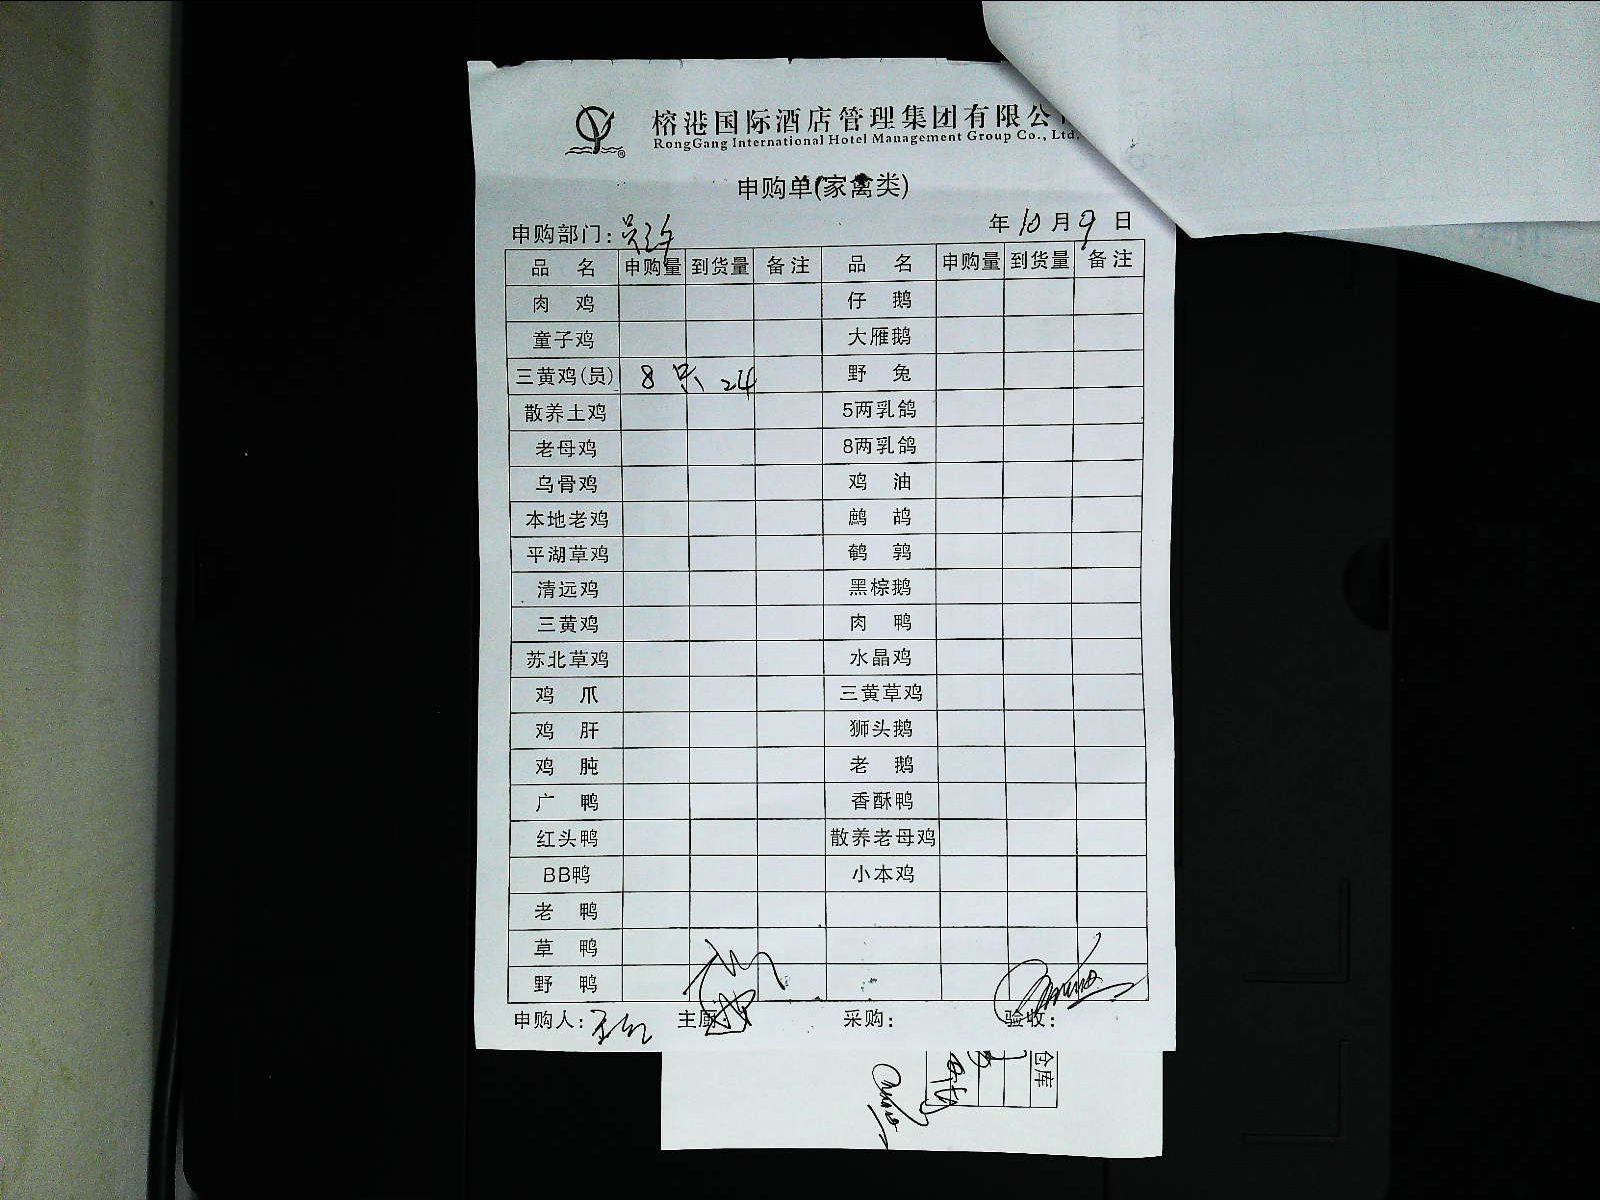 榕港国际酒店管理集团有限公
RongGang International Hotel Management Group Co., Ltd.
申购单(家禽类)
申购部门: 年 10 月 9 日
品 名 申购量 到货量 备注 品 名 申购量 到货量 备注
肉 鸡 仔 鹅
童子鸡 大雁鹅
三黄鸡(员) 8 只 24 野 兔
散养土鸡 5两乳鸽
老母鸡 8两乳鸽
乌骨鸡 鸡 油
本地老鸡 鹧 鸪
平湖草鸡 鹌 鹑
清远鸡 黑棕鹅
三黄鸡 肉 鸭
苏北草鸡 水晶鸡
鸡 爪 三黄草鸡
鸡 肝 狮头鹅
鸡 肫 老 鹅
广 鸭 香酥鸭
红头鸭 散养老母鸡
BB鸭 小本鸡
老 鸭
草 鸭
野 鸭
申购人: 主厨: 采购: 验收:
仓库